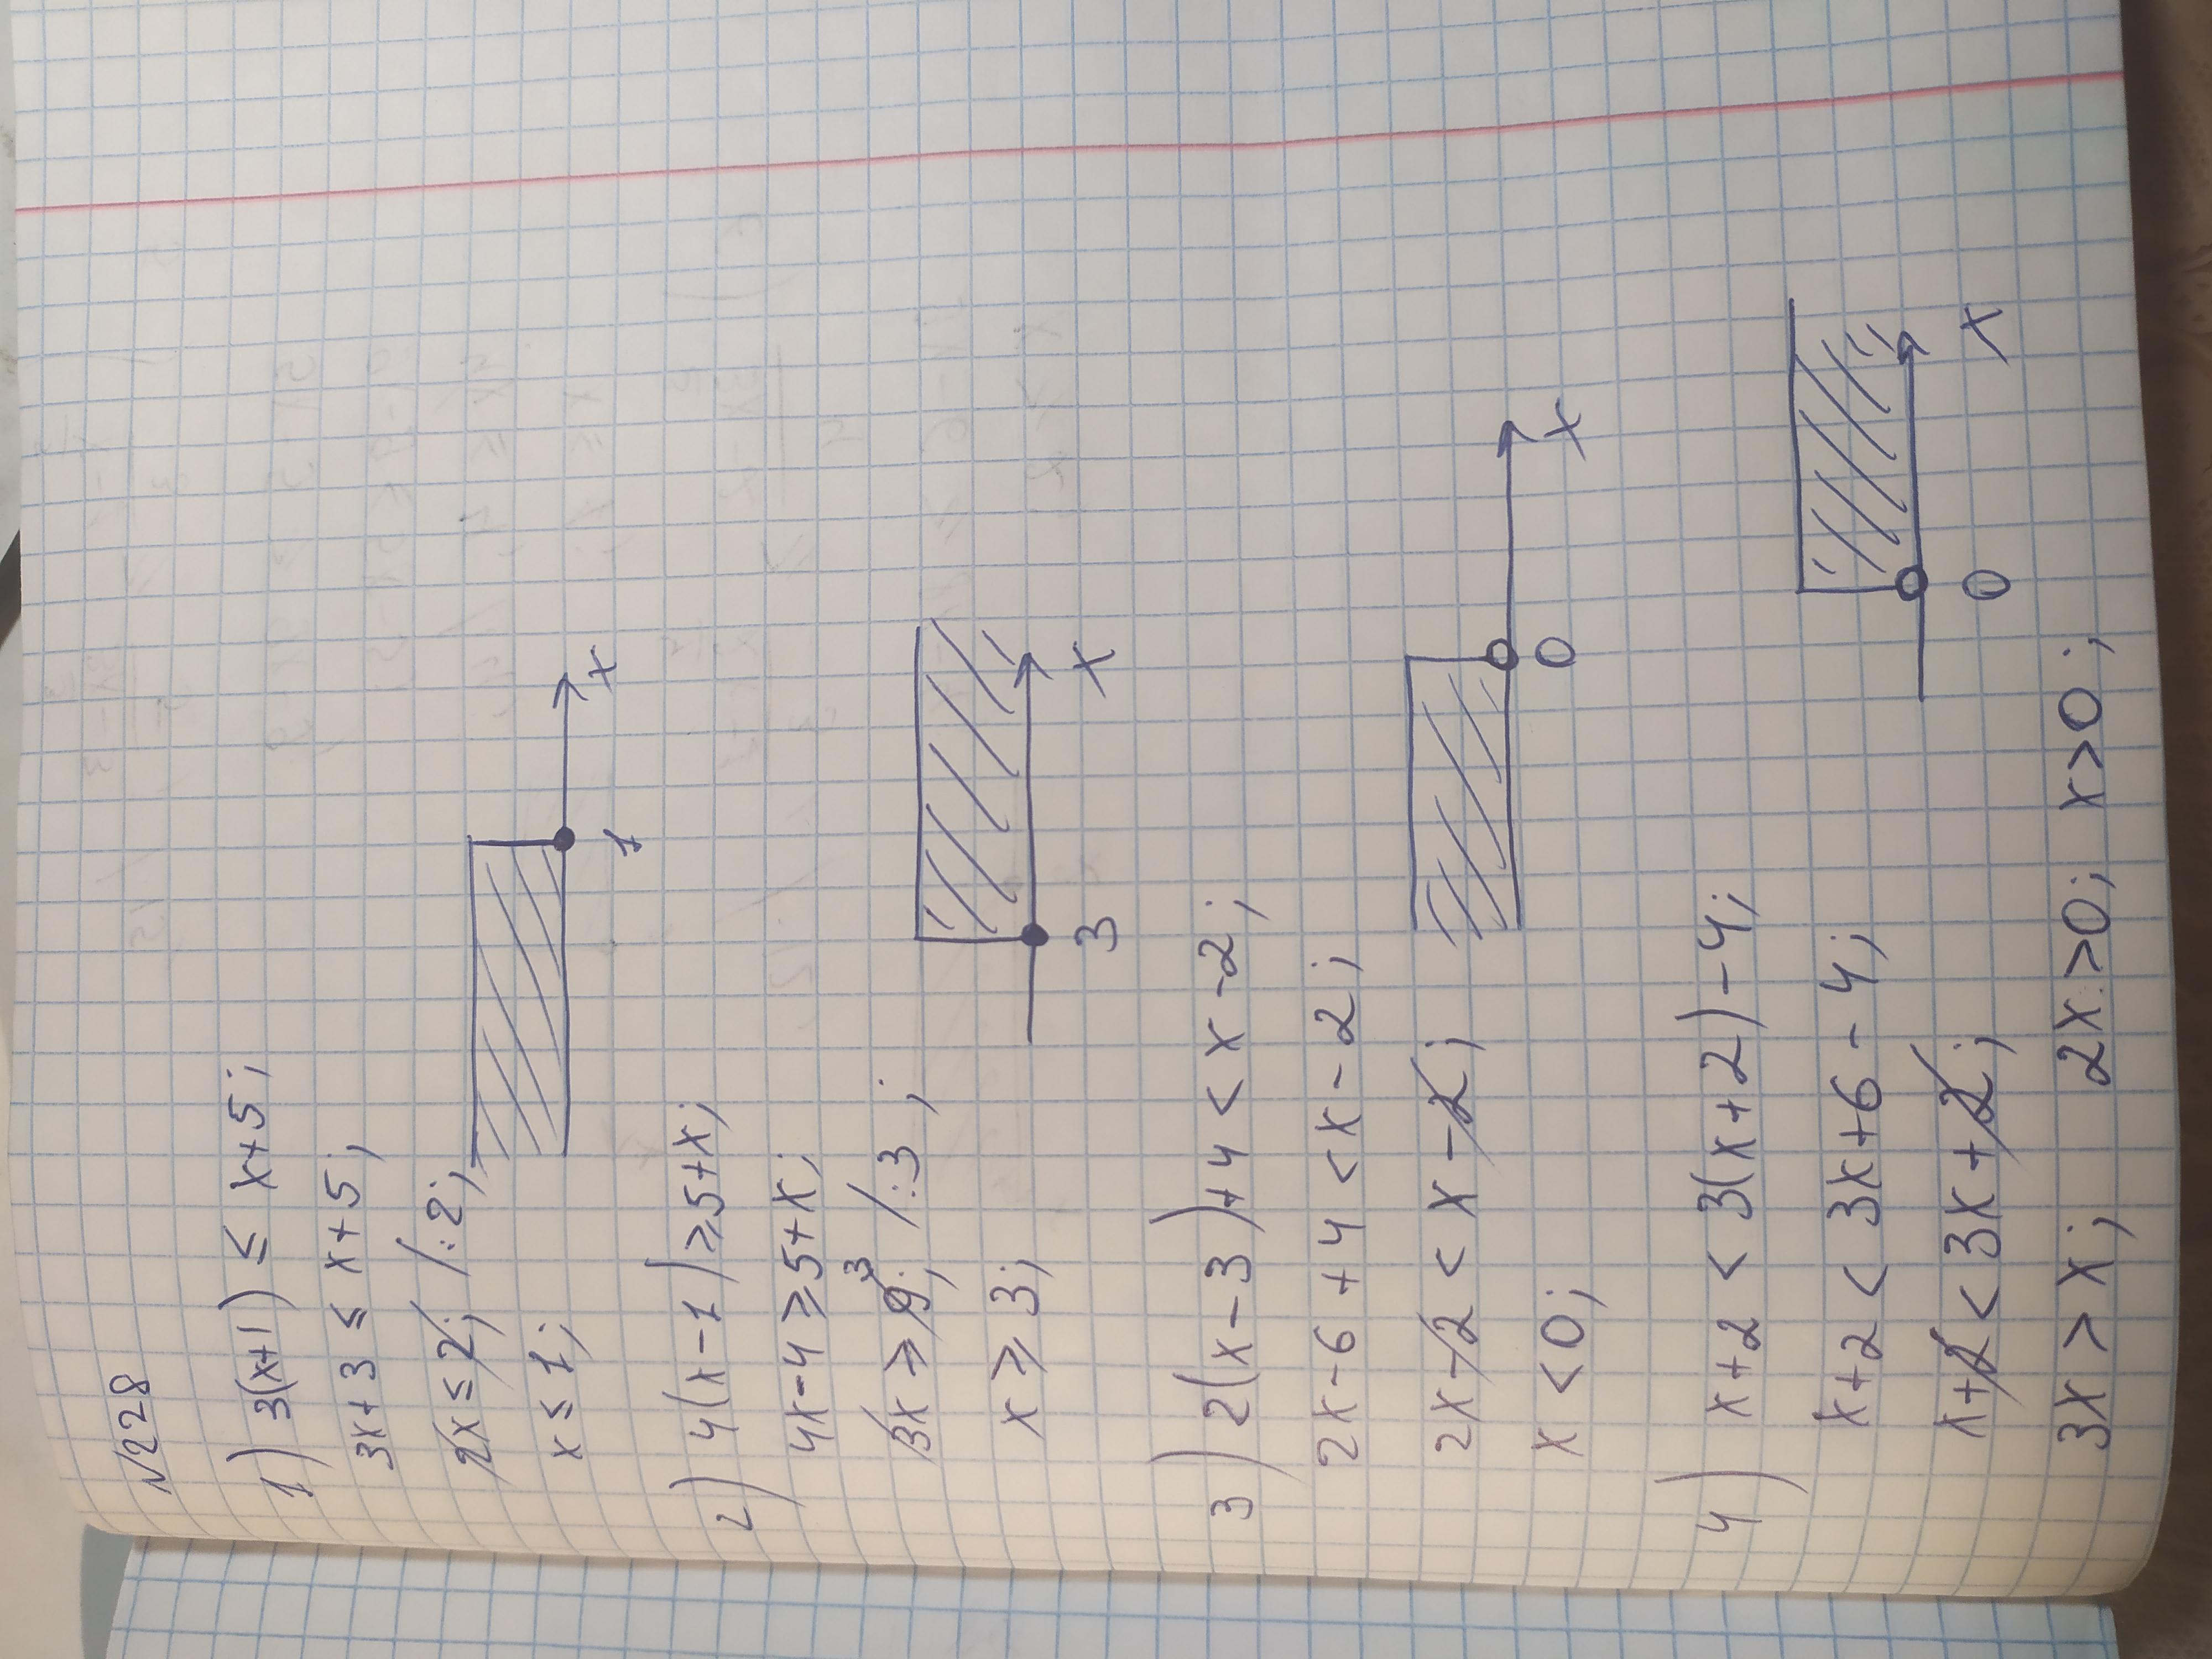 №228
1) 3(x+1) ≤ x+5;
3x+3 ≤ x+5;
2x ≤ 2; /:2;
x ≤ 1;
1 x
2) 4(x-1) ≥ 5+x;
4x-4 ≥ 5+x;
3x ≥ 9; 3 /:3;
x ≥ 3;
3 x
3) 2(x-3)+4 < x-2;
2x-6+4 < x-2;
2x-2 < x-2;
x < 0;
0 x
4) x+2 < 3(x+2)-4;
x+2 < 3x+6-4;
x+2 < 3x+2;
3x > x; 2x > 0; x > 0;
0 x